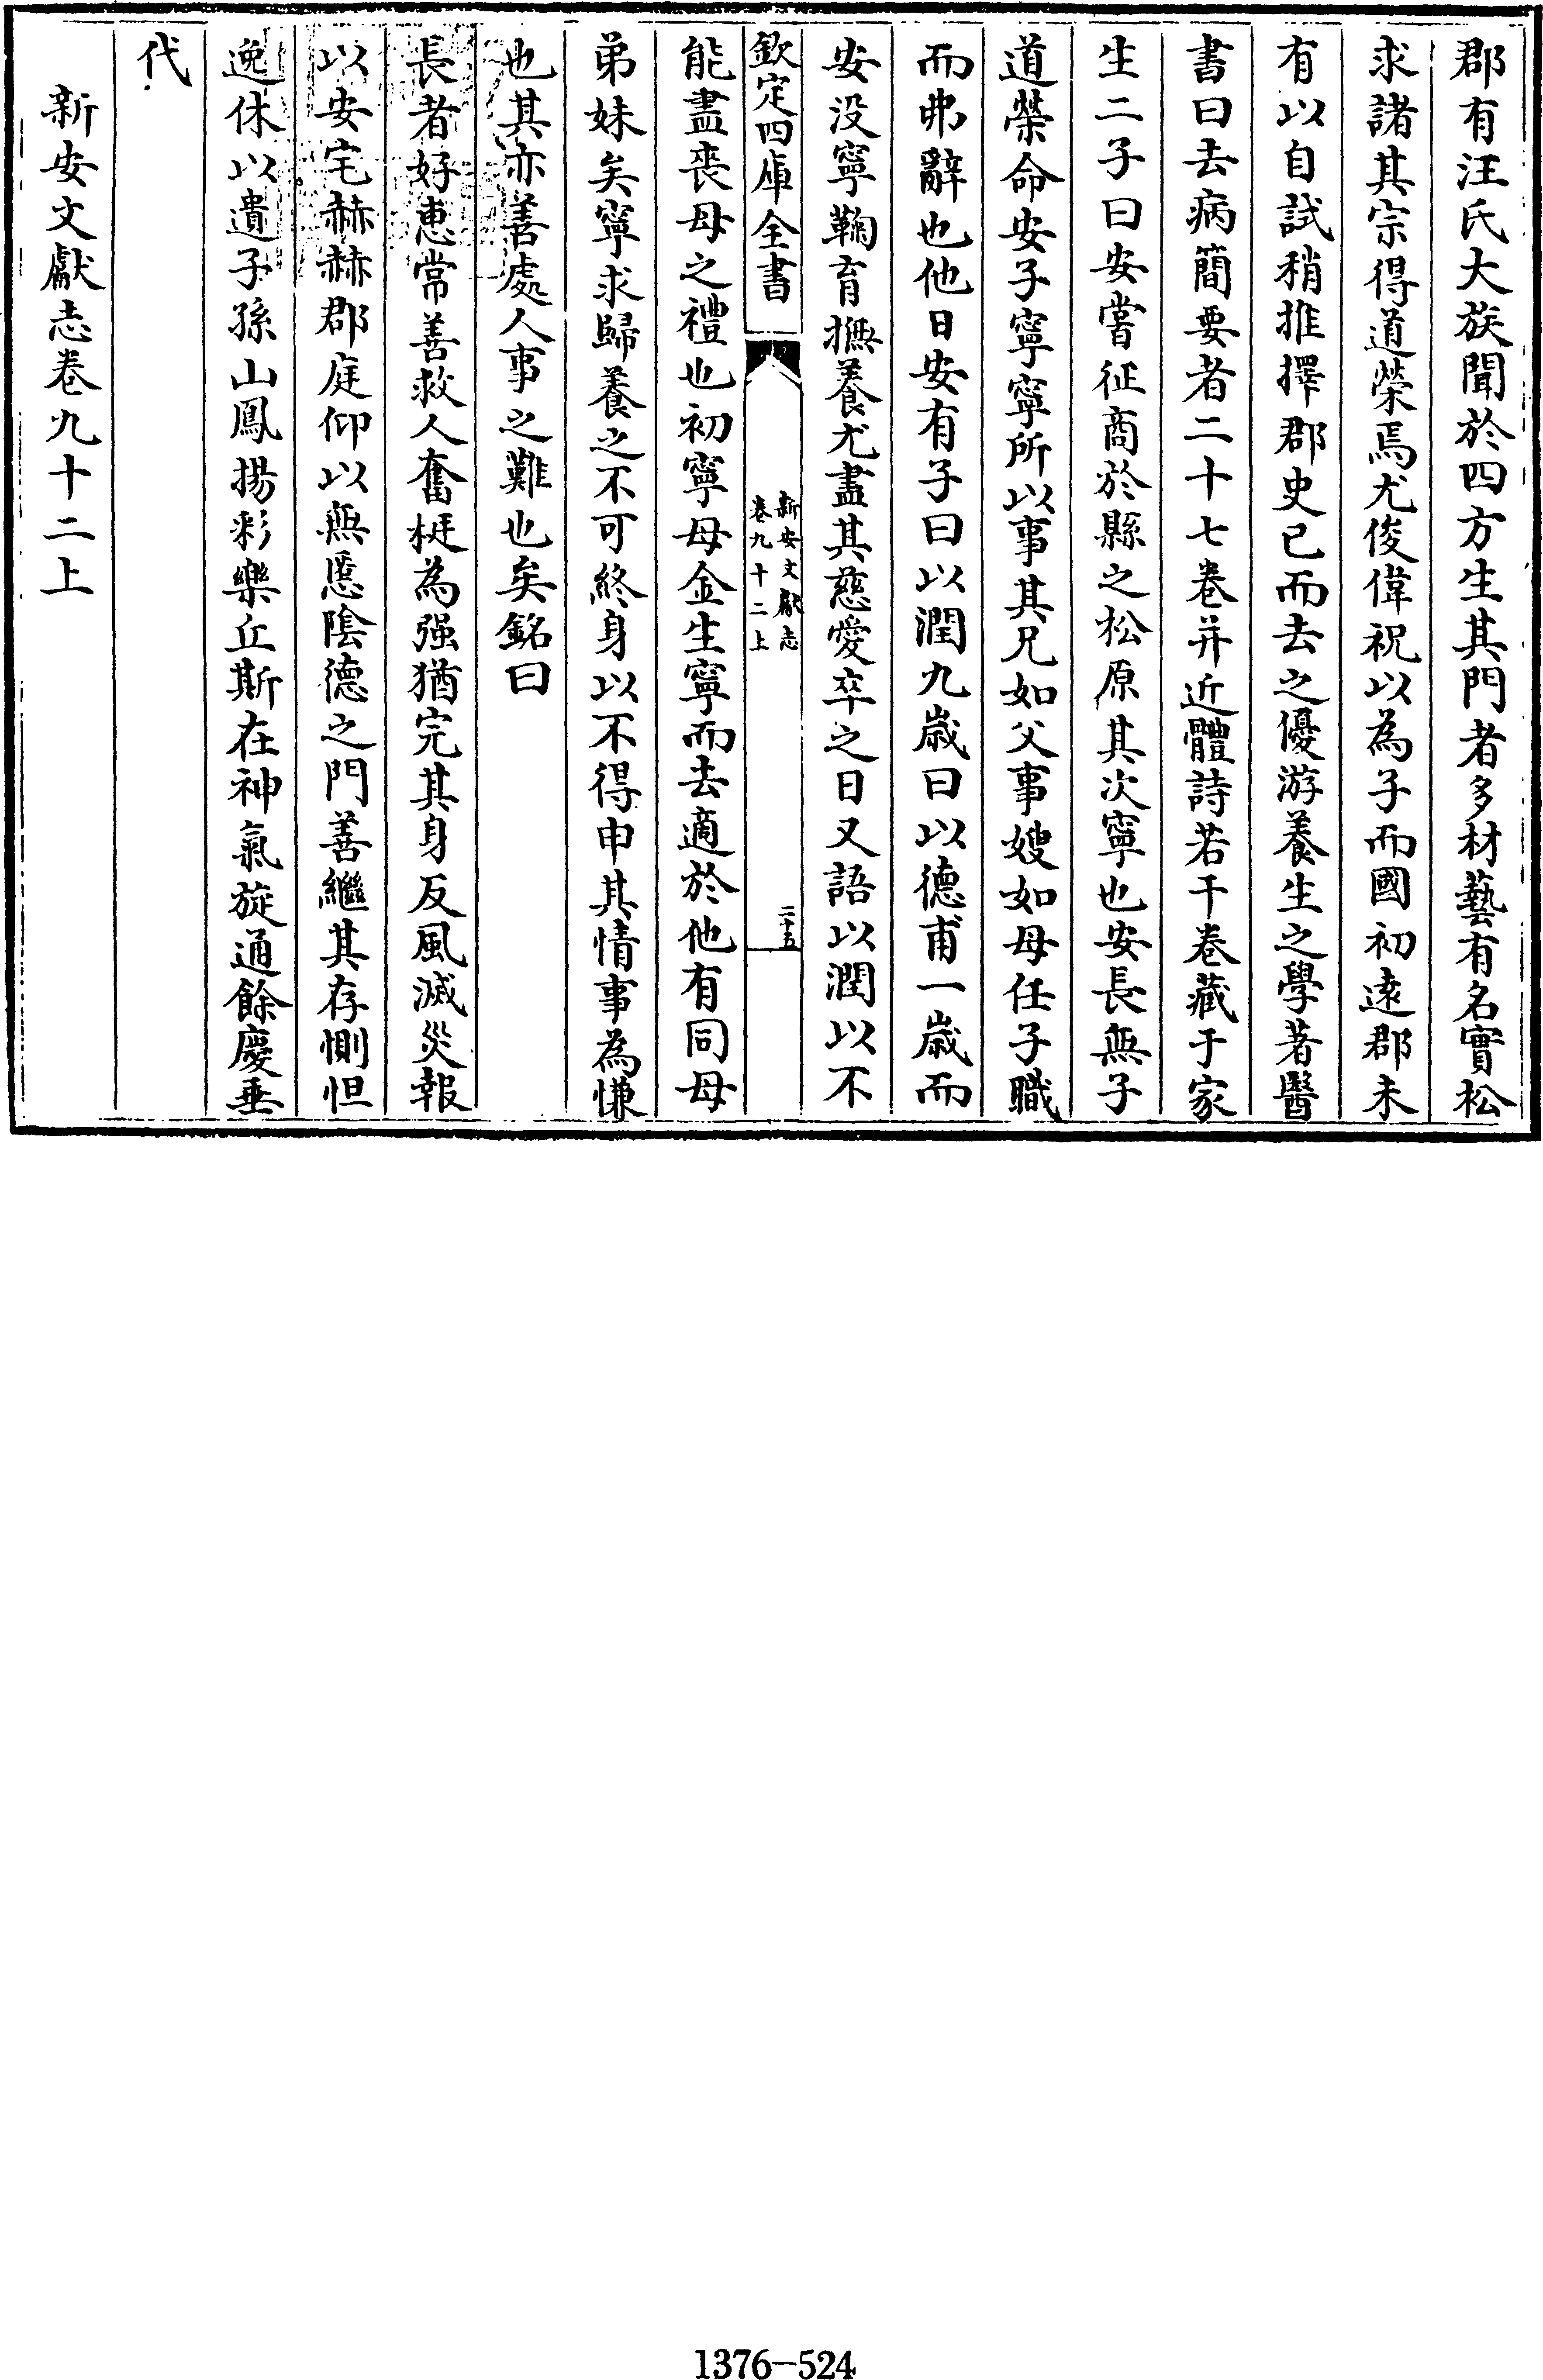 郡有汪氏大族聞於四方生其門者多材藝有名實松
求諸其宗得道榮焉尤俊偉祝以為子而國初逺郡未
有以自試稍推擇郡史已而去之優游養生之學著醫
書曰去病簡要者二十七卷并近體詩若干卷藏于家
生二子曰安嘗征商於縣之松原其次寧也安長無子
道榮命安子寧寧所以事其兄如父事嫂如母任子職
而弗辭也他日安有子曰以潤九歳曰以德甫一歳而
安没寧鞠育撫養尤盡其慈愛卒之日又語以潤以不
欽定四庫全書
新安文獻志
卷九十二上
二十五
能盡喪母之禮也初寧母金生寧而去適於他有同母
弟妹矣寧求歸養之不可終身以不得申其情事為慊
也其亦善處人事之難也矣銘曰
長者好恵常善救人奮梃為强猶完其身反風滅災報
以安宅赫赫郡庭仰以無慝陰德之門善繼其存惻怛
逸休以遺子孫山鳳揚彩樂丘斯在神氣旋通餘慶垂
代
新安文獻志卷九十二上
1376-524